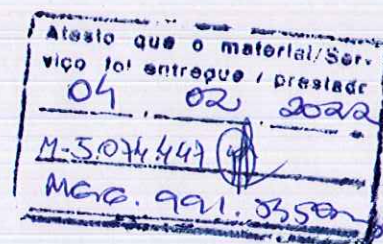 Atesto que o material/Ser-
viço foi entregue / prestado
04 . 02 . 2022
M-5.074.447